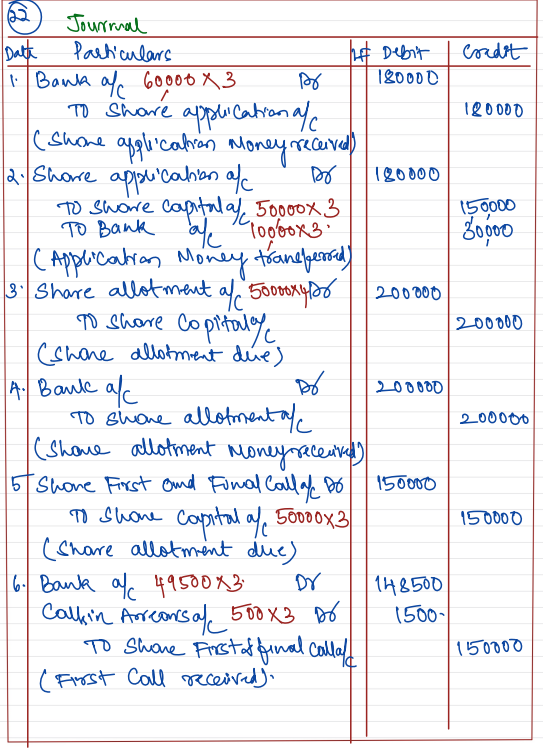 22 Journal
Date Particulars LF Debit Credit
1. Bank a/c 60000 × 3 Dr 180000
To Share application a/c 180000
(Share application Money received)
2. Share application a/c Dr 180000
To Share Capital a/c 50000 × 3 150000
To Bank a/c 10000 × 3. 30000
(Application Money transferred)
3. Share allotment a/c 50000×4 Dr 200000
To Share Capital a/c 200000
(Share allotment due)
4. Bank a/c Dr 200000
To Share allotment a/c 200000
(Share allotment Money received)
5 Share First and Final Call a/c Dr 150000
To Share Capital a/c 50000×3 150000
(Share allotment due)
6. Bank a/c 49500×3. Dr 148500
Calls in Arrears a/c 500×3 Dr 1500.
To Share First & final call a/c 150000
(First Call received).